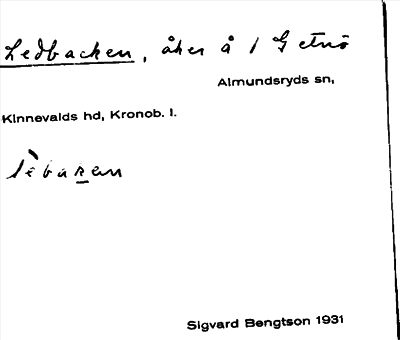 Ledbacken, åker å 1 Getnö
Almundsryds sn,
Kinnevalds hd, Kronob. l.
lèbaken
Sigvard Bengtson 1931